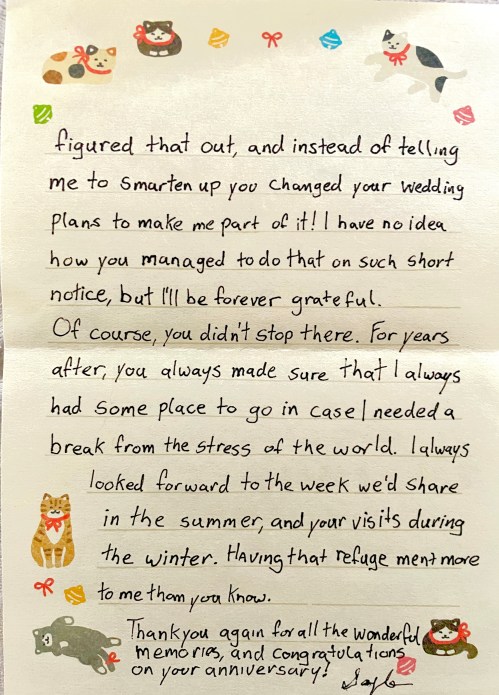 figured that out, and instead of telling
me to smarten up you changed your wedding
plans to make me part of it! I have no idea
how you managed to do that on such short
notice, but I'll be forever grateful.
Of course, you didn't stop there. For years
after, you always made sure that I always
had some place to go in case I needed a
break from the stress of the world. I always
looked forward to the week we'd share
in the summer, and your visits during
the winter. Having that refuge ment more
to me than you know.
Thank you again for all the wonderful
memories, and congratulations
on your anniversary!